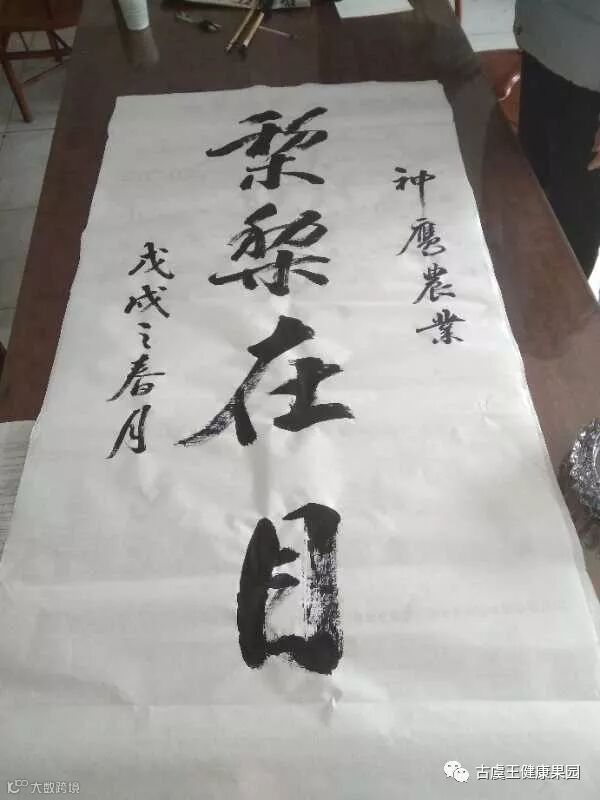 神鹰農業
梨梨在目
戊戌之春月
古虞王健康果园
大数跨境